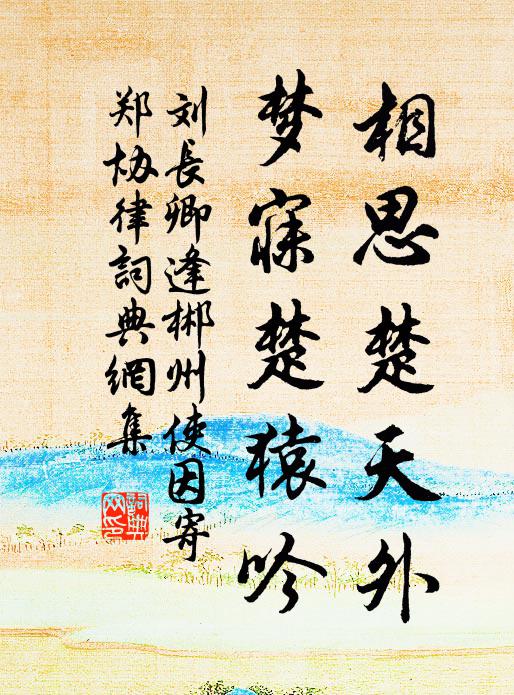 相思楚天外
梦寐楚猿吟
刘長卿逢郴州使因寄
郑协律詞典網集